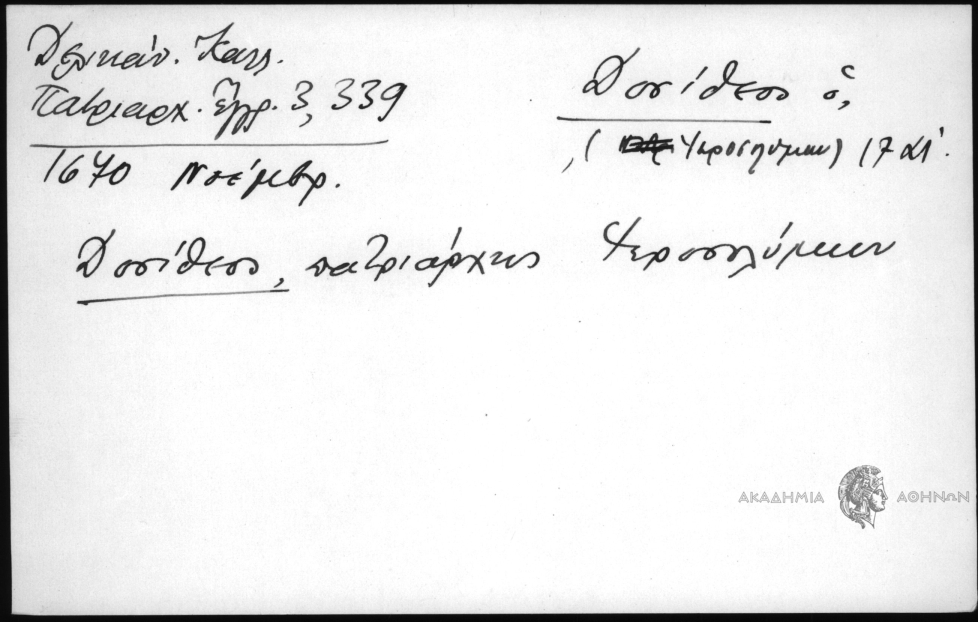 Δελικάν. Καλλ.
Πατριαρχ. Ἔγγρ. 3, 339
1670 Νοέμβρ.
Δοσίθεος ὁ,
(Ἱεροσολύμων) 17 αἰ.
Δοσίθεος, πατριάρχης Ἱεροσολύμων
ΑΚΑΔΗΜΙΑ ΑΘΗΝΩΝ